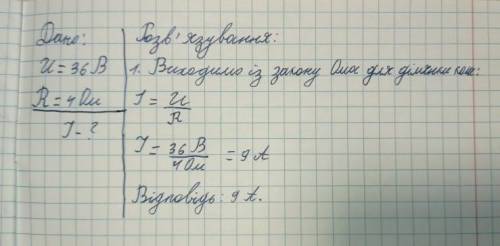 Дано:
U = 36 В
R = 4 Ом
I - ?
Розв'язування:
1. Виходимо із закону Ома для ділянки кола:
I = U / R
I = 36 В / 4 Ом = 9 А
Відповідь: 9 А.